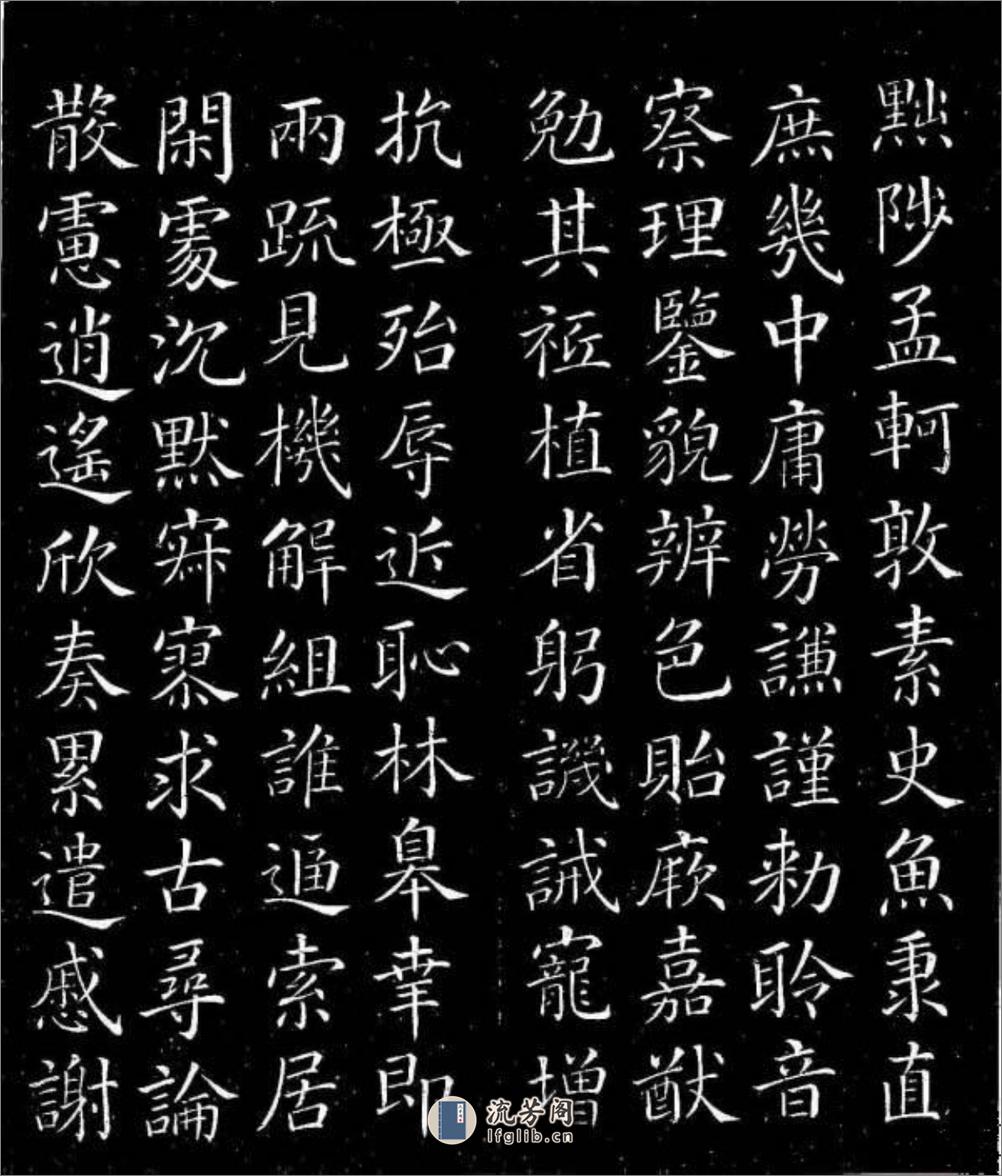 黜陟孟軻敦素史魚秉直
庶幾中庸勞謙謹勑聆音
察理鑒貌辨色貽厥嘉猷
勉其祗植省躬譏誡寵增
抗極殆辱近恥林皋幸即
兩疏見機解組誰逼索居
閑處沉默寂寥求古尋論
散慮逍遙欣奏累遣慼謝
流芳阁
lfglib.cn